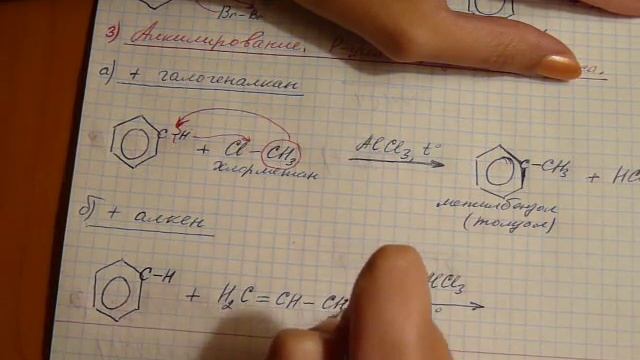 Br-Br
3) Алкилирование.
а) + галогеналкан
C-H + Cl-CH3 AlCl3, t° C-CH3 + HC
хлорметан
метилбензол
(толуол)
б) + алкен
C-H + H2C=CH-CH